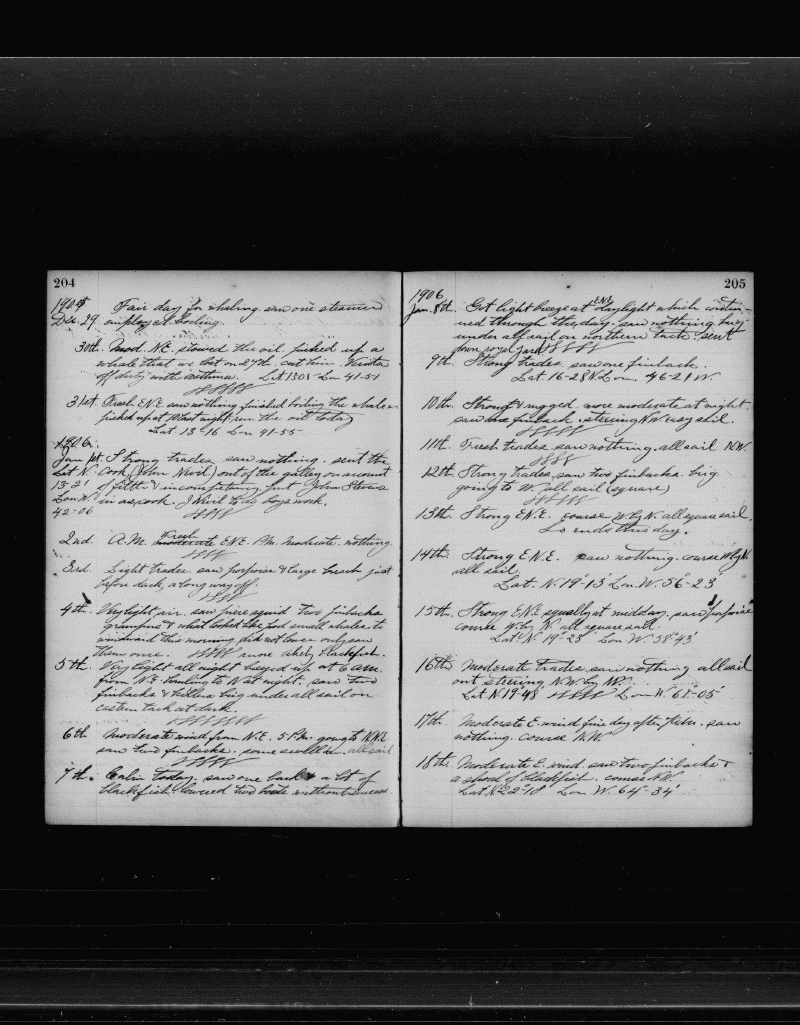 204
1905 Fair day for whaling. saw one steamer
Dec. 29 employed boiling.
30th. Mod. N.E. stowed the oil. picked up a
whale that we lost on 27th. cut him in.
off duty with asthma. Lat 13-05 Lon 41-51
31st. Fresh E.N.E. saw nothing finished boiling the whale
picked up at last night, run the oil today
Lat. 13-16 Lon 41-55
1906.
Jan 1st Strong trades saw nothing. sent the
Lat N. cook (John Nevil) out of the galley on account
13-21 of filth & incompetency. put John Stevens
Lon W. in as cook. J Nevil to do boys work.
42-06
2nd. A.M. Fresh moderate E.N.E. P.M. Moderate. nothing
3rd. Light trades. saw porpoise & large breach just
before dark, a long way off.
4th. Very light air. saw piece squid two finbacks
grampus & what looked like pod small whales to
windward this morning, did not lower only saw
them once. more likely blackfish.
5th. Very light all night. up at 6 am.
from N.E. hauling to N at night. saw two
finbacks & killers brig under all sail on
eastern tack at dark.
6th Moderate wind from N.E. 5 P.M. going to N.N.E.
saw two finbacks. some swell on. all sail
7th. Calm today. saw one & a lot of
blackfish. lowered two boats without success
205
1906
Jan. 8th. Got light breeze at E.N.E. daylight which contin-
ued through the day. saw nothing. brig
under all sail on northern tack. sent
down royal yard
9th. Strong trades, saw one finback.
Lat. 16-28 N Lon. 46-21 W.
10th. Strong & rugged. more moderate at night.
saw one finback. steering N.W. easy sail.
11th. Fresh trades, saw nothing. all sail N.W.
12th. Strong trades, saw two finbacks. brig
going to W. all sail (square)
13th. Strong E.N.E. course W by N. all square sail.
So ends this day.
14th. Strong E.N.E. saw nothing. course W by N.
all sail.
Lat. N. 19°-13' Lon. W. 56-23'
15th. Strong E.N.E. squally at midday. saw porpoise
course W. by N. all square sail
Lat N 19°-23' Lon W. 58°43'
16th Moderate trades, saw nothing all sail
out steering N.W. by
Lat N 19°48' Lon W 61°-05'
17th. Moderate E. wind fine day saw
nothing. course N.W.
18th. Moderate E. wind. saw two finbacks &
a shoal of blackfish. course N.W.
Lat N 22°-18' Lon. W. 64°-34'